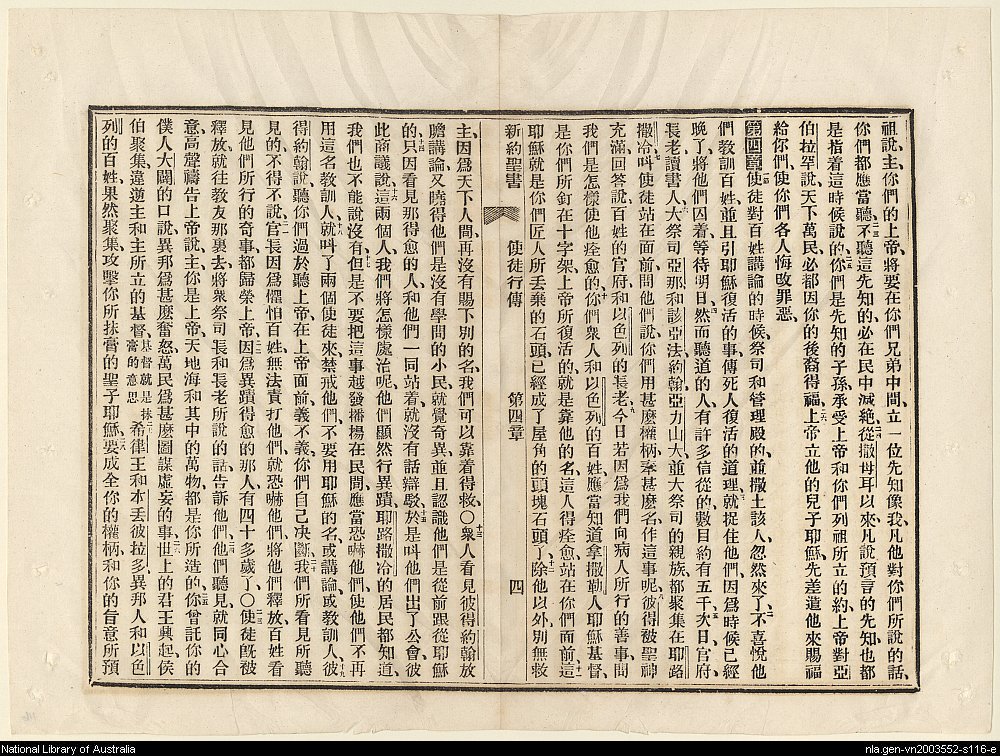 祖說、主、你們的上帝、將要在你們兄弟中間、立一位先知像我、凡他對你們所說的話、
你們都應當聽、不聽這先知的、必在民中滅絶、從撒母耳以來、凡說預言的先知、也都
是指着這時候說的、你們是先知的子孫、承受上帝和你們列祖所立的約、上帝對亞
伯拉罕說、天下萬民、必都因你的後裔得福、上帝立他的兒子耶穌、先差遣他來賜福
給你們、使你們各人悔改罪惡、
第四章使徒對百姓講論的時候、祭司和管理殿的、並撒土該人忽然來了、不喜悅他
們教訓百姓、並且引耶穌復活的事、傳死人復活的道理、就捉住他們、因爲時候已經
晚了、將他們囚着、等待明日、然而聽道的人、有許多信從的、數目約有五千、次日、官府
長老讀書人、大祭司亞那和該亞法約翰亞力山大、並大祭司的親族、都聚集在耶路
撒冷、呌使徒站在面前、問他們說、你們用甚麼權柄、奉甚麼名、作這事呢、彼得被聖神
充滿、回答說、百姓的官府、和以色列的長老、今日若因爲我們向病人所行的善事、問
我們是怎樣使他痊愈的、你們衆人、和以色列的百姓、應當知道拿撒勒人耶穌基督、
是你們所釘在十字架、上帝所復活的、就是靠他的名、這人得痊愈、站在你們面前、這
耶穌就是你們匠人所丟棄的石頭、已經成了屋角的頭塊石頭了、除他以外、別無救
新約聖書 使徒行傳 第四章 四
主、因爲天下人間、再沒有賜下別的名、我們可以靠着得救、○衆人看見彼得約翰放
膽講論、又曉得他們是沒有學問的小民、就覺奇異、並且認識他們是從前跟從耶穌
的、只因看見那得愈的人、和他們一同站着、就沒有話辯駁、於是呌他們出了公會、彼
此商議說、這兩個人、我們將怎樣處治呢、他們顯然行異蹟、耶路撒冷的居民都知道、
我們也不能說沒有、但是不要把這事越發播揚在民間、應當恐嚇他們、使他們不再
用這名教訓人、就呌了兩個使徒來、禁戒他們、不要用耶穌的名、或講論、或教訓人、彼
得約翰說、聽你們過於聽上帝、在上帝面前義不義、你們自己決斷、我們所看見所聽
見的、不得不說、官長因爲懼怕百姓、無法責打他們、就恐嚇他們、將他們釋放、百姓看
見他們所行的奇事、都歸榮上帝、因爲異蹟得愈的那人、有四十多歲了、○使徒旣被
釋放、就往教友那裏去、將衆祭司長和長老所說的話告訴他們、他們聽見、就同心合
意、高聲禱告上帝說、主、你是上帝、天地海和其中的萬物、都是你所造的、你曾託你的
僕人大闢的口說、異邦爲甚麼奮怒、萬民爲甚麼圖謀虛妄的事、世上的君王興起、侯
伯聚集、違逆主、和主所立的基督、基督就是抹膏的意思希律王和本丟彼拉多、異邦人和以色
列的百姓、果然聚集、攻擊你所抹膏的聖子耶穌、要成全你的權柄和你的旨意所預
National Library of Australia
nla.gen-vn2003552-s116-e